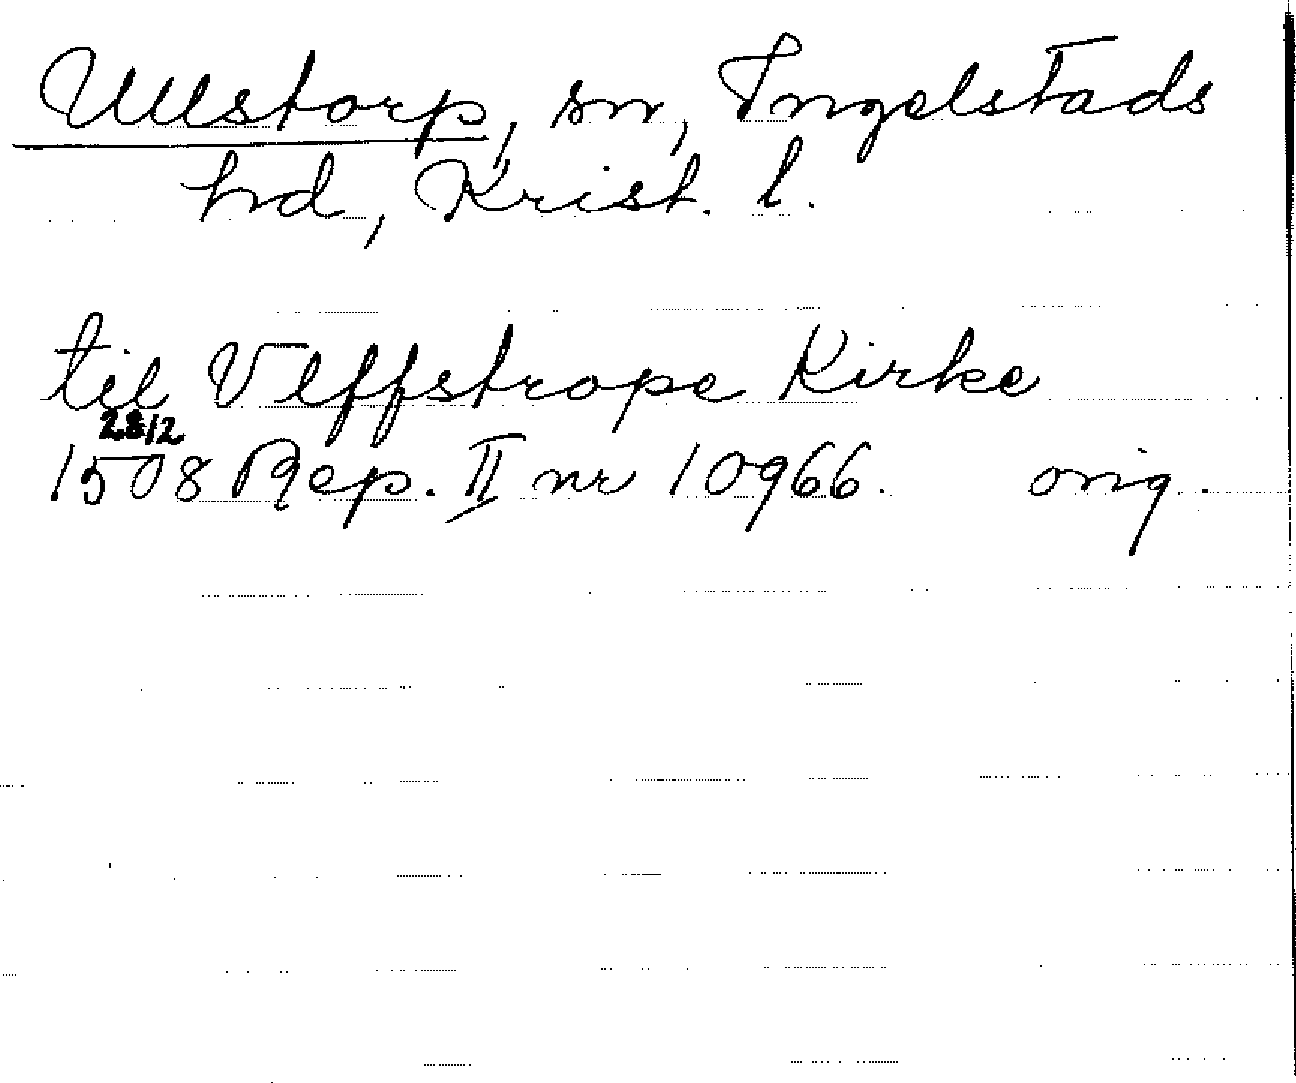 Ullstorp, sn, Ingelstads
hd, Krist. l.
til Vlffstrope Kirke
28/2
1508 Rep. II nr 10966. orig.